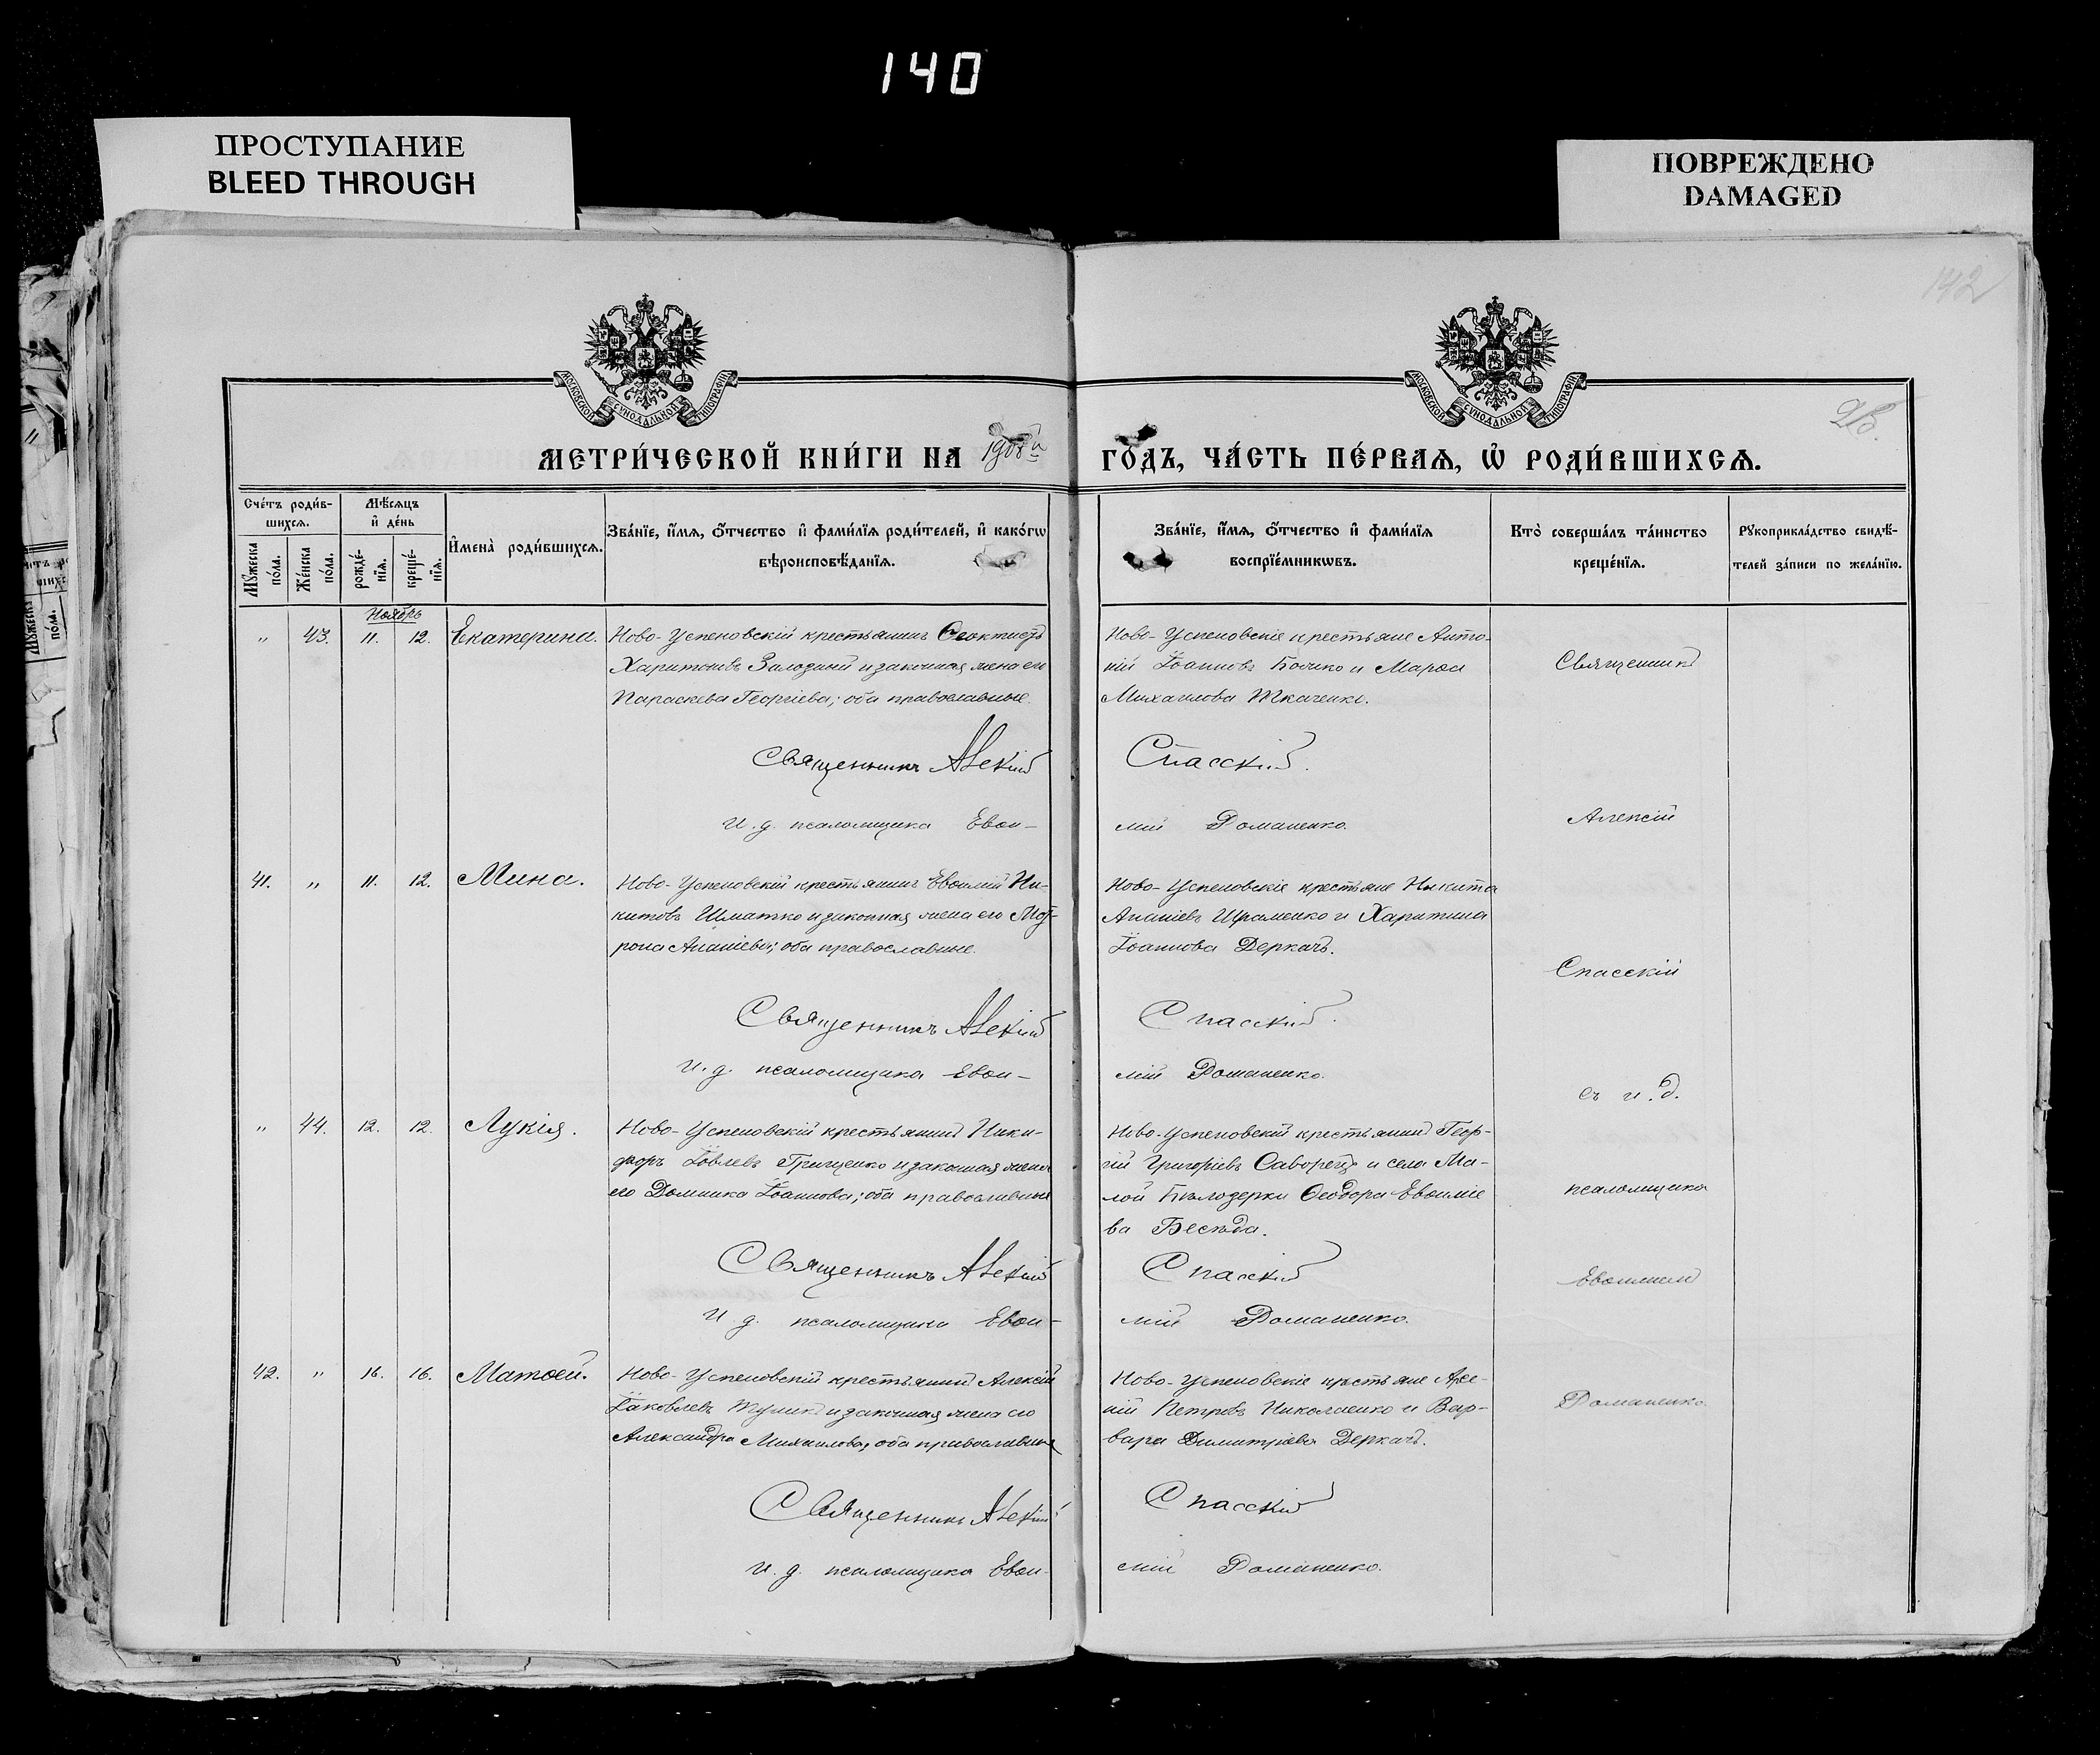 140
ПРОСТУПАНИЕ
BLEED THROUGH
ПОВРЕЖДЕНО
DAMAGED
142
МОСКОВСКОЙ СѴНОДАЛЬНОЙ ТИПОГРАФІИ
МОСКОВСКОЙ СѴНОДАЛЬНОЙ ТИПОГРАФІИ
МЕТРИ́ЧЕСКОЙ КНИ́ГИ НА 1908й ГО́ДЪ, ЧА́СТЬ ПЕ́РВАѦ, Ѡ҆ РОДИ́ВШИХСѦ.
Сче́тъ роди́в-
шихсѧ.
Мѣ́сѧцъ
и҆ де́нь
Мꙋ́жеска
по́ла.
Же́нска
по́ла.
рожде́-
нїѧ.
креще́-
нїѧ.
И҆мена̀ роди́вшихсѧ.
Зва́нїе, и҆́мѧ, ѻ҆́тчество и҆ фами́лїѧ роди́телей, и҆ како́гѡ
вѣроисповѣ́данїѧ.
Зва́нїе, и҆́мѧ, ѻ҆́тчество и҆ фами́лїѧ
воспрїе́мникѡвъ.
Кто̀ соверша́лъ та́инство
креще́нїѧ.
Рꙋкоприкла́дство свидѣ́-
телей за́писи по жела́нїю.
Ноябрь
" 43. 11. 12. Екатерина. Ново-Успеновскій крестьянинъ Ѳеоктистъ
Харитоновъ и законная жена его
Параскева Георгіева; оба православные.
Ново-Успеновскіе крестьяне Анто-
ній Іоанновъ Бойко и Марѳа
Михаилова Ткаченко.
Священникъ Алексій Спасскій.
И. д. псаломщика Евѳи-
мій Романенко.
41. " 11. 12. Мина. Ново-Успеновскій крестьянинъ Евѳимій Ни-
китовъ Шматко и законная жена его Мат-
рона Ананіева; оба православные.
Ново-Успеновскіе крестьяне Никита
Ананіевъ Шраменко и Харитина
Іоаннова Деркачъ.
Священникъ Алексій Спасскій.
И. д. псаломщика Евѳи-
мій Романенко.
" 44. 12. 12. Лукія. Ново-Успеновскій крестьянинъ Ники-
форъ Іовлевъ Грищенко и законная жена
его Домника Іоаннова; оба православные
Ново-Успеновскій крестьянинъ Геор-
гій Григоріевъ и села Ма-
лой Бѣлозерки Ѳеодора Евѳиміе
ва Бесѣда.
Священникъ Алексій Спасскій
И д. псаломщика Евѳи-
мій Романенко.
42. " 16. 16. Матѳей. Ново-Успеновскій крестьянинъ Алексій
Іаковлевъ и законная жена его
Александра Михаилова, оба православные
Ново-Успеновскіе крестьяне Арсе-
ній Петровъ Николаенко и Вар-
вара Димитріева Деркачъ.
Священникъ Алексій Спасскій
И. д. псаломщика Евѳи-
мій Романенко.
Священникъ
Алексій
Спасскій
съ и. д.
псаломщика
Евѳиміем
Романенко.